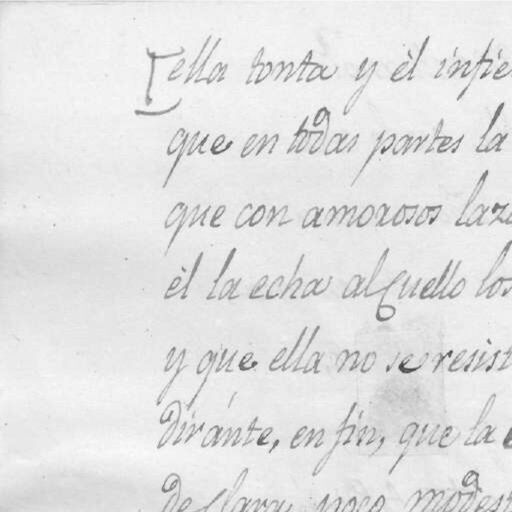 ella tonta y èl infie
que en todas partes la
que con amorosos laz
èl la echa al Cuello los
y que ella no se resist
diránte, en fin, que la
de Clara poco modest